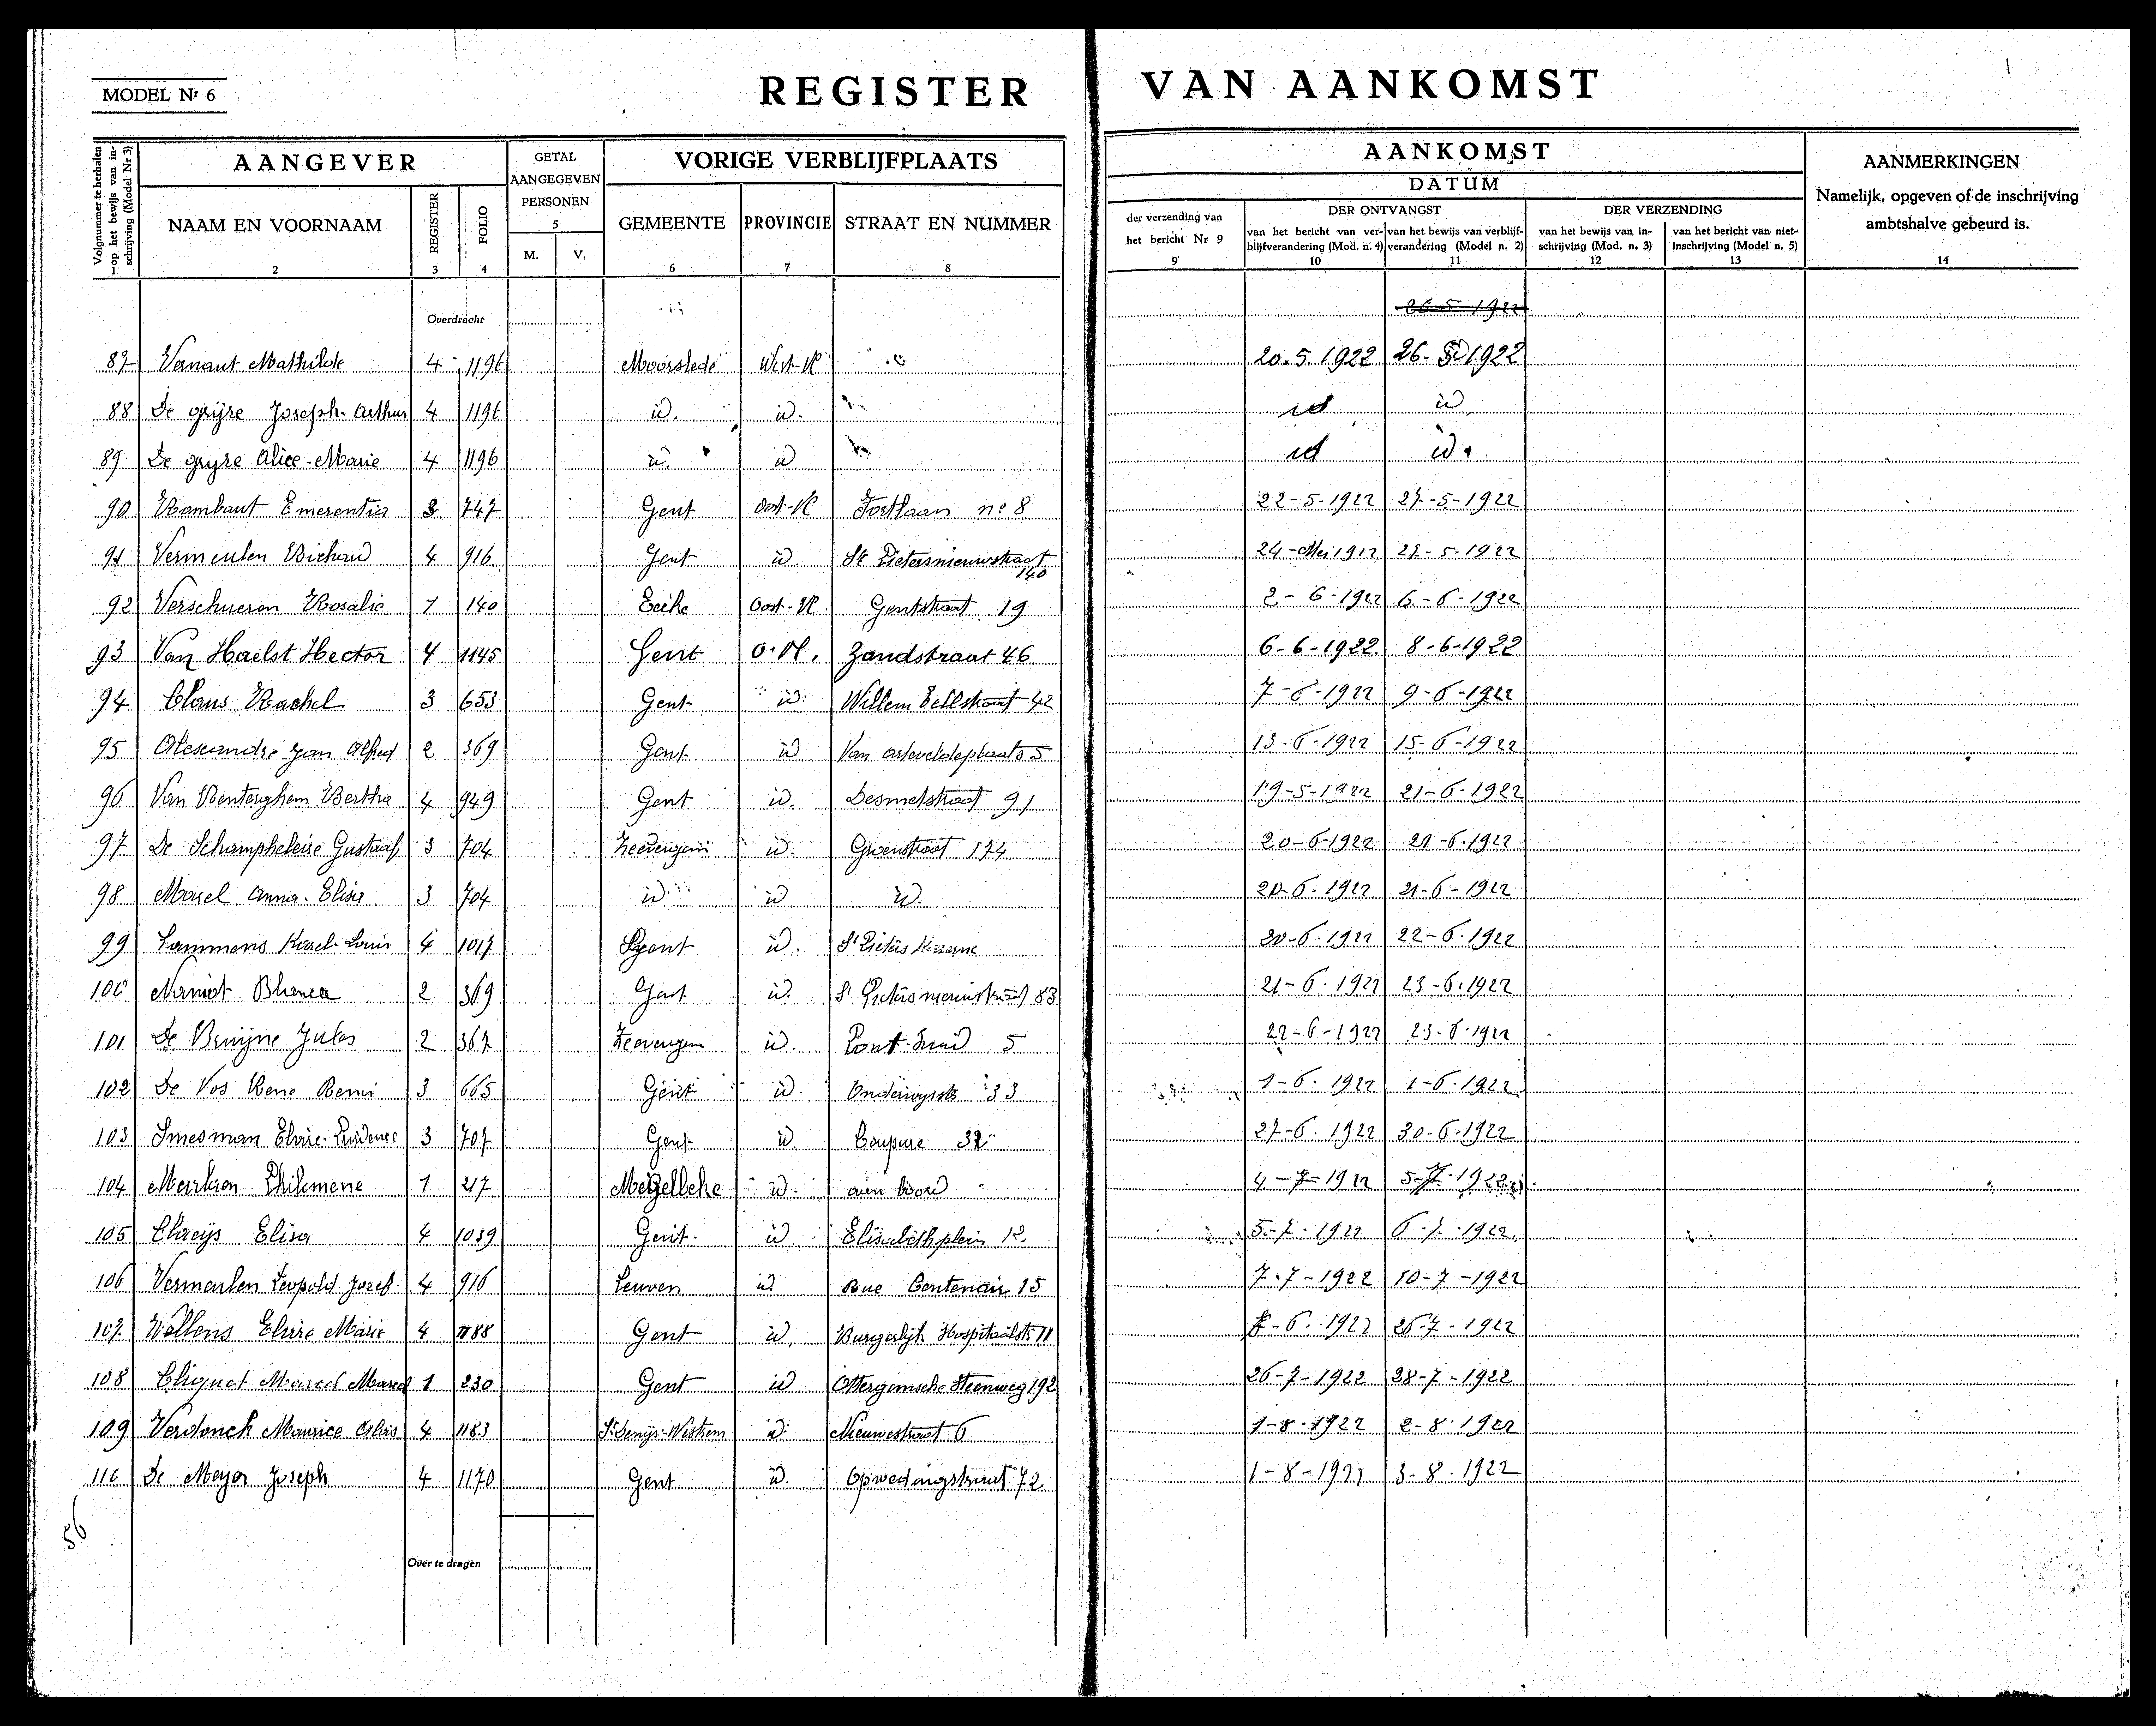 MODEL Nr 6
REGISTER VAN AANKOMST
Volgnummer te herhalen op het bewijs van inschrijving (Model Nr 3)
1
AANGEVER
NAAM EN VOORNAAM
2
REGISTER
3
FOLIO
4
GETAL AANGEGEVEN PERSONEN
5
M. V.
VORIGE VERBLIJFPLAATS
GEMEENTE
6
PROVINCIE
7
STRAAT EN NUMMER
8
AANKOMST
DATUM
der verzending van het bericht Nr 9
9
DER ONTVANGST
van het bericht van verblijfverandering (Mod. n. 4)
10
van het bewijs van verblijfverandering (Model n. 2)
11
DER VERZENDING
van het bewijs van inschrijving (Mod. n. 3)
12
van het bericht van niet-inschrijving (Model n. 5)
13
AANMERKINGEN
Namelijk, opgeven of de inschrijving ambtshalve gebeurd is.
14
Overdracht 26-5-1922
87 Vanaut Mathilde 4 1196 Moorslede West-Vl 20.5.1922 26.5.1922
88 De gryse Joseph-Arthur 4 1196 id. id. id id
89 De gryse Alice-Marie 4 1196 id. id id id.
90 Rombaut Emerentia 3 747 Gent Oost-Vl Fortlaan n° 8 22-5-1922 27-5-1922
91 Vermeulen Richard 4 916 Gent id. St Pietersnieuwstraat 140 24-Mei 1922 27-5-1922
92 Verschueren Rosalie 1 140 Eeke Oost-Vl. Gentstraat 19 2-6-1922 6-6-1922
93 Van Haelst Hector 4 1145 Gent O.Vl. Zandstraat 46 6-6-1922 8-6-1922
94 Claus Rachel 3 653 Gent id. Willem Tellstraat 42 7-6-1922 9-6-1922
95 Jan Alfred 2 369 Gent id Van Arteveldeplaats 5 13-6-1922 15-6-1922
96 Van Renterghem Bertha 4 949 Gent id. Desmetstraat 91 19-5-1922 21-6-1922
97 De Schampheleire Gustaaf 3 704 Zevergem id. Groenstraat 174 20-6-1922 21-6-1922
98 Anna-Elisa 3 704 id id id. 20-6-1922 21-6-1922
99 Lammens Karel-Louis 4 1017 Gent id. St Pieters Kazerne 20-6-1922 22-6-1922
100 Blanca 2 369 Gent id. St Pietersnieuwstraat 83 21-6-1922 23-6-1922
101 De Bruijne Jules 2 367 Zevergem id. 5 22-6-1922 23-6-1922
102 De Vos Rene Remi 3 665 Gent id. 33 1-6-1922 1-6-1922
103 Smesman Elvire-Prudence 3 707 Gent id. Coupure 32 27-6-1922 30-6-1922
104 Philemene 1 217 id. aan boord 4-7-1922 5-7-1922
105 Claeijs Elisa 4 1039 Gent id. Elisabethplein 12 5-7-1922 6-7-1922
106 Vermeulen Leopold Jozef 4 916 Leuven id rue Centenair 15 7-7-1922 10-7-1922
107 Wellens Elvire Marie 4 1188 Gent id. Burgerlijk Hospitaalstr 11 -6-1922 26-7-1922
108 Cliquet Marcel 1 230 Gent id Ottergemsche Steenweg 192 26-7-1922 28-7-1922
109 Verdonck Maurice 4 1183 St Denijs-Westrem id. Nieuwestraat 6 1-8-1922 2-8-1922
110 De Meyer Joseph 4 1170 Gent id. 72 1-8-1922 3-8-1922
56
Over te dragen